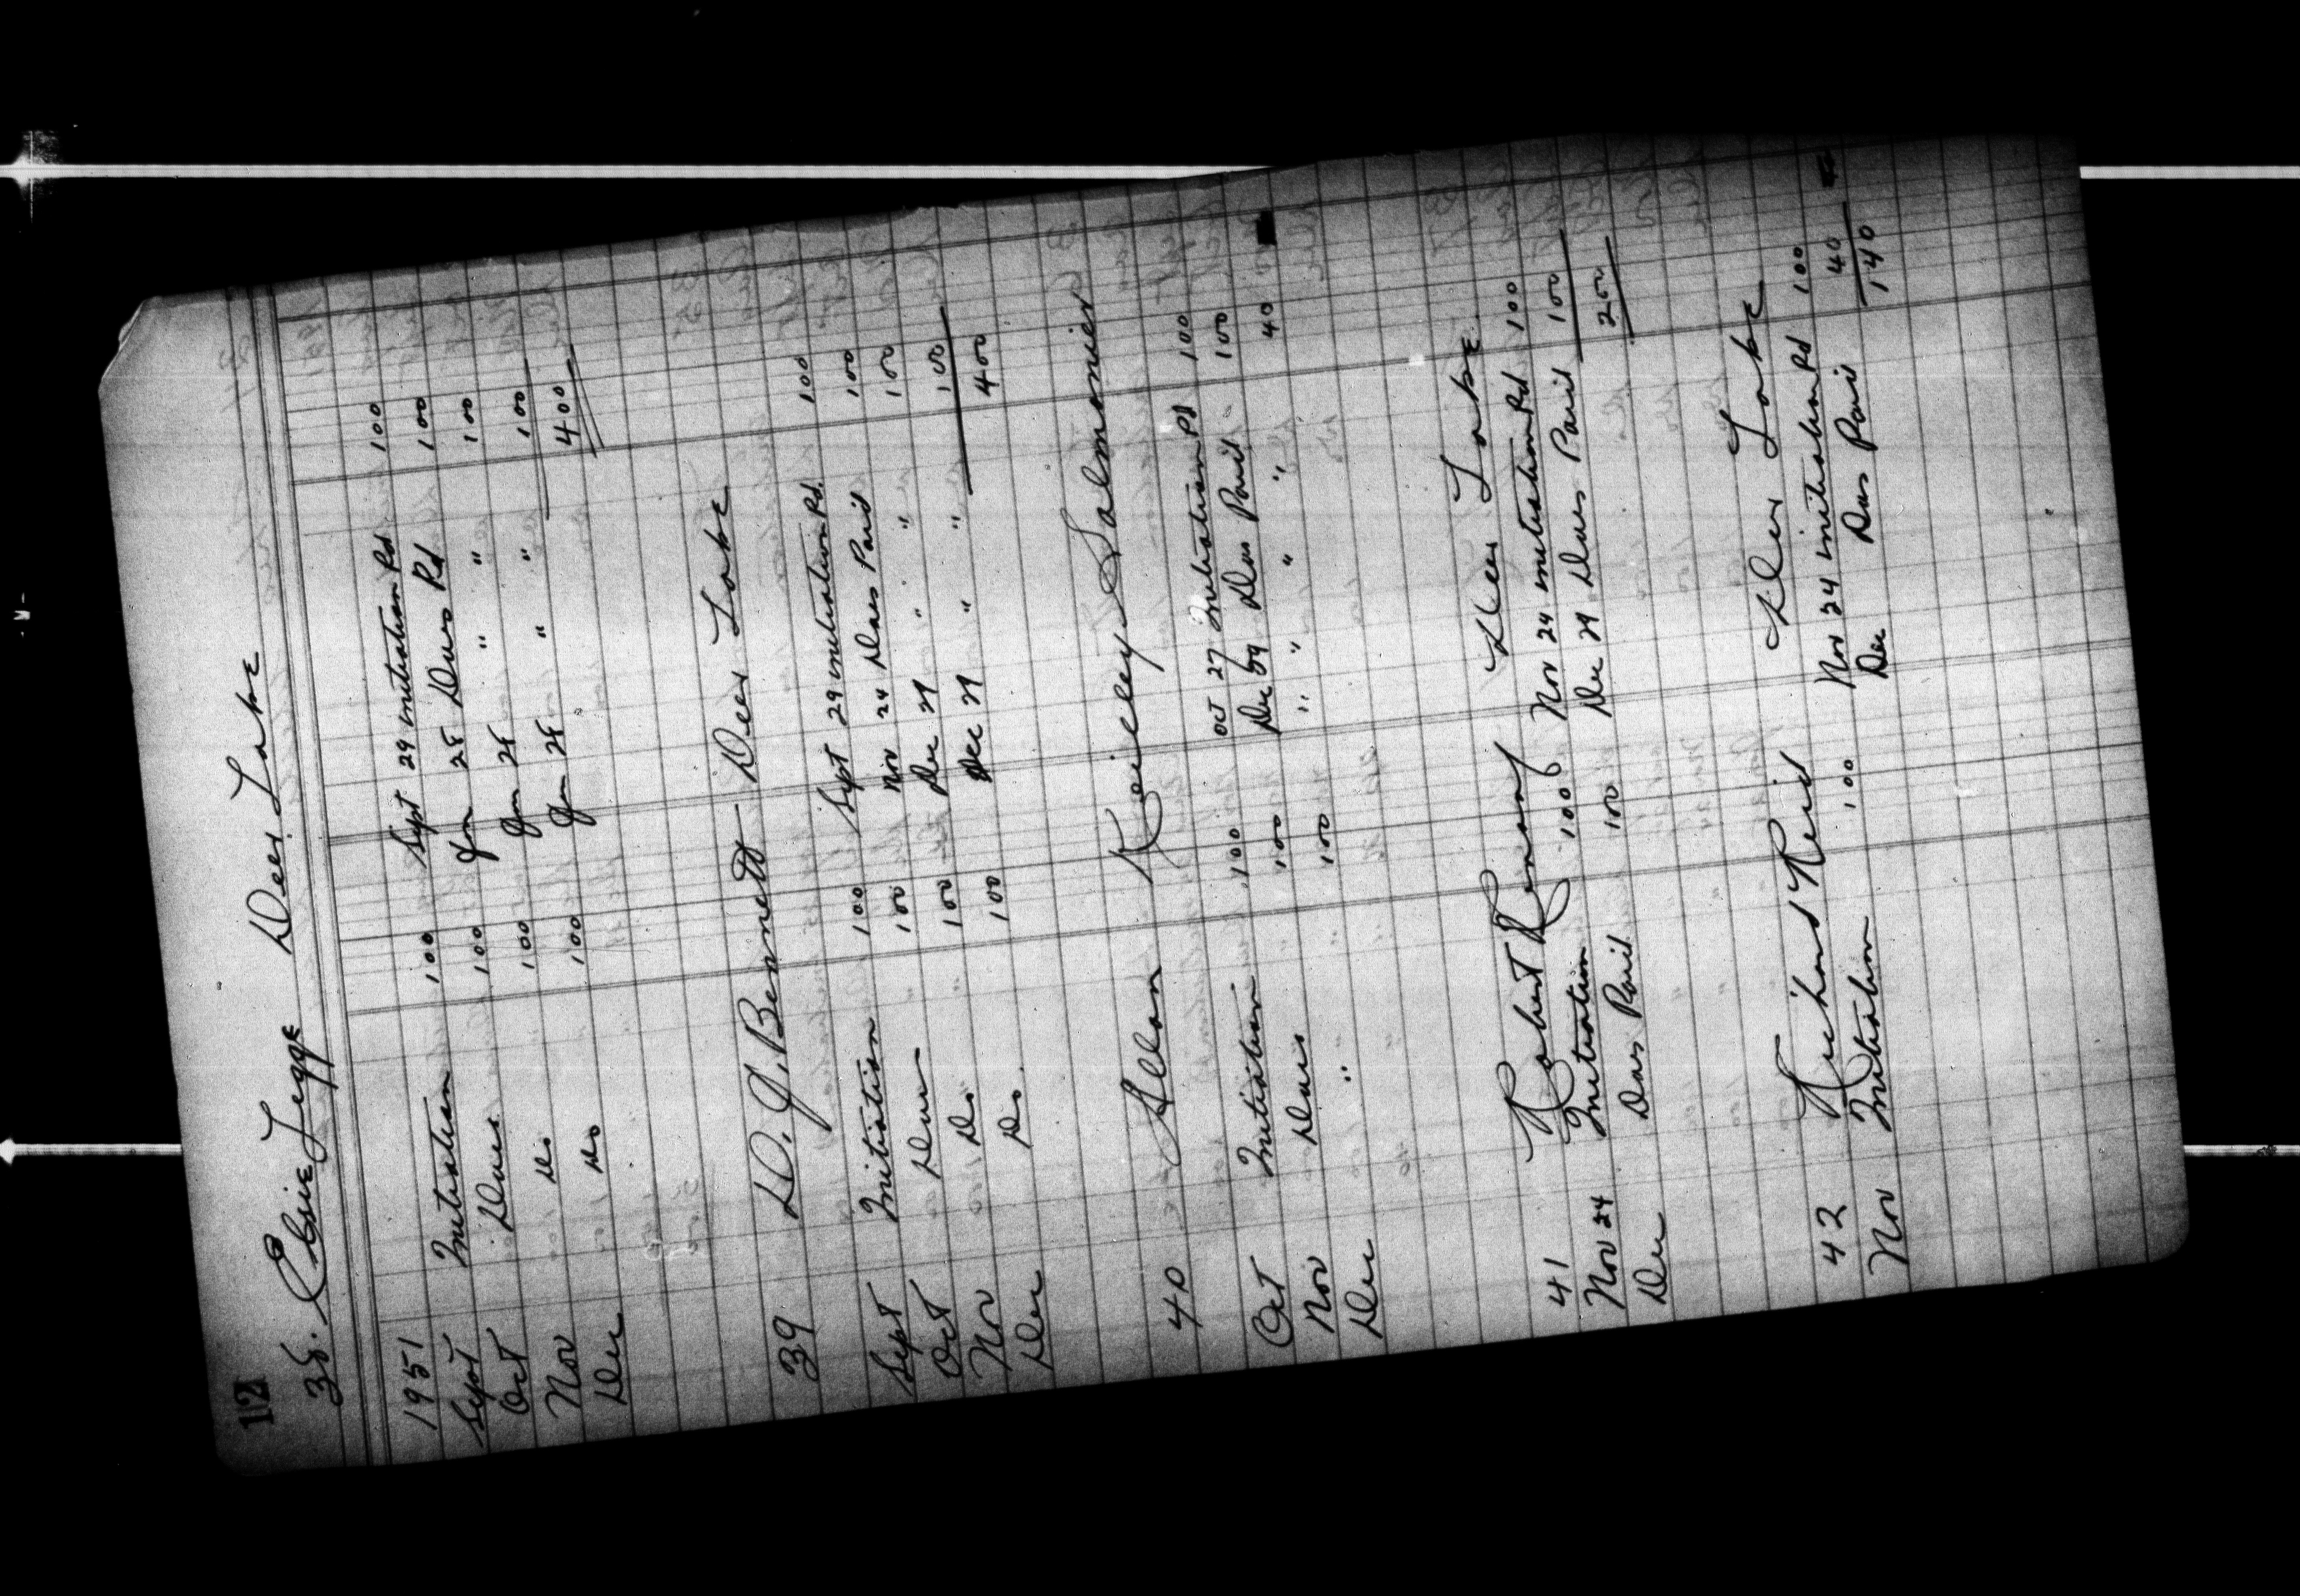 12
38. Elsie Legge Deer Lake
1951
Sept Initiation 100 Sept 29 initiation Pd 100
Oct Dues 100 Jan 25 Dues Pd 100
Nov Do 100 Jan 25 " " 100
Dec Do 100 Jan 25 " " 100
400
39 D. J. Bennett Deer Lake
Sept Initiation 100 Sept 29 initiation Pd. 100
Oct Dues 100 Nov 24 Dues Paid 100
Nov Do 100 Dec 29 " " 100
Dec Do. 100 Dec 29 " " 100
400
40 Allan Salmonier
Oct Initiation 100 Oct 27 Initiation Pd 100
Nov Dues 100 Dec 29 Dues Paid 100
Dec " 100 " " " " 40
41 Robert Deer Lake
Nov 24 Initiation 100 Nov 24 initiation Pd 100
Dec Dues Paid 100 Dec 29 Dues Paid 100
200
42 Richard Reid Deer Lake
Nov Initiation 100 Nov 24 initiation Pd 100
Dec Dues Paid 40
140